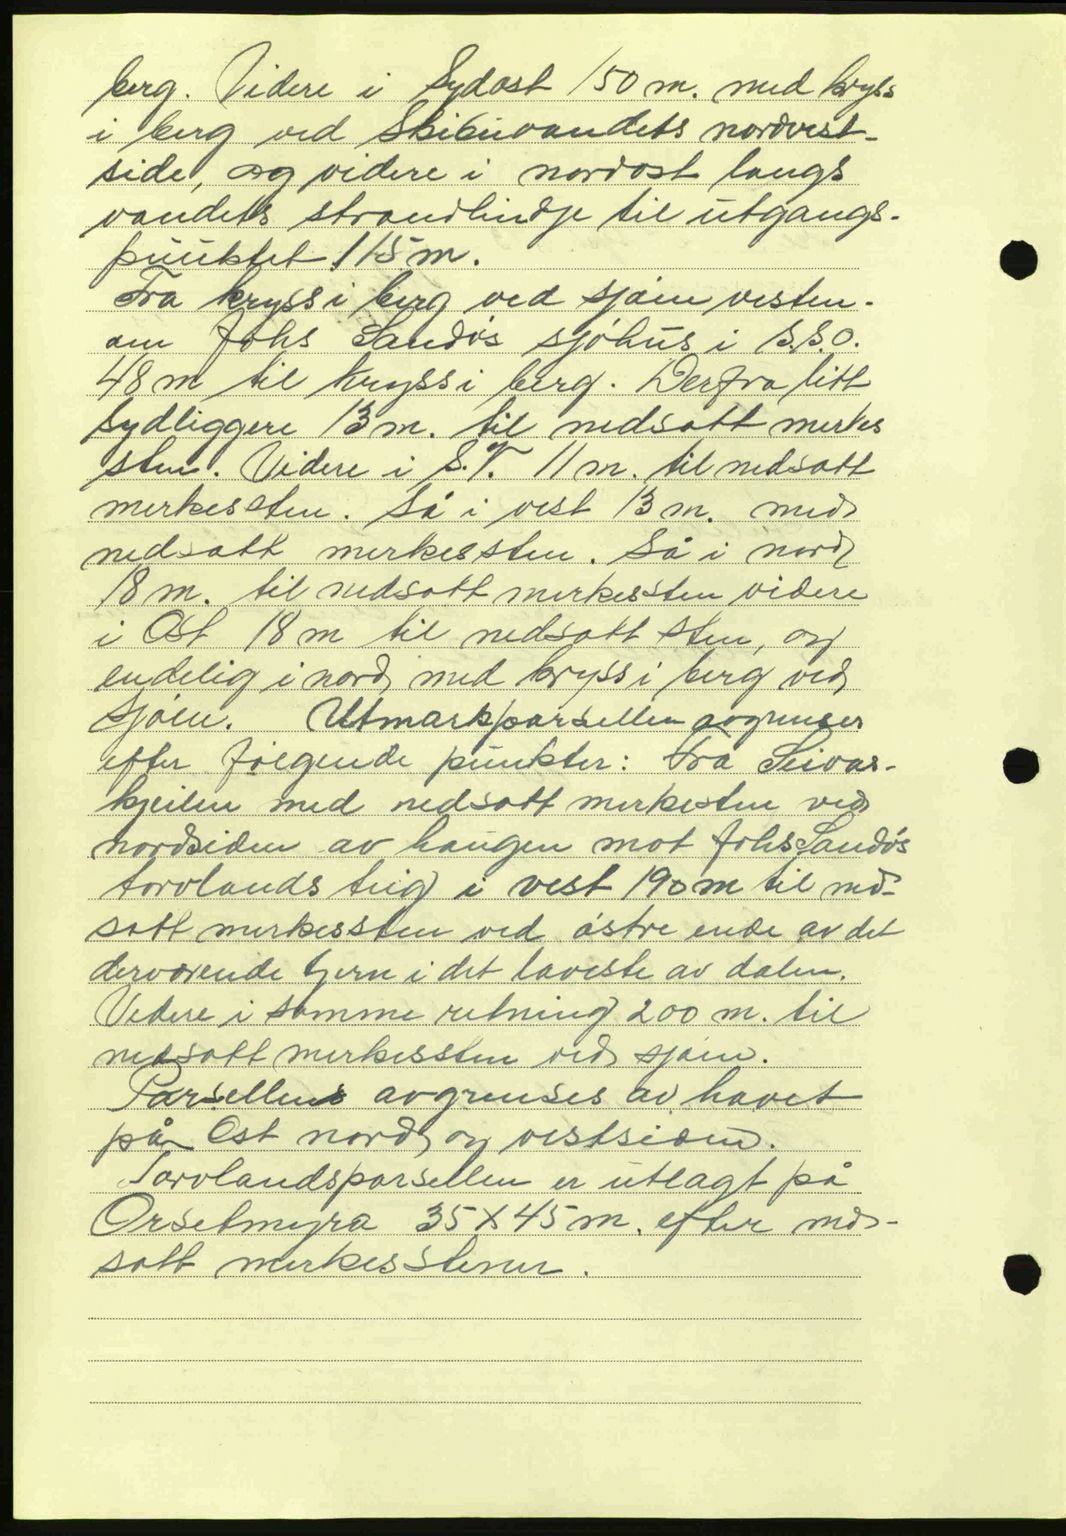 berg. Videre i Sydøst 150 m. med kryss
i berg ved Skibuvandets nordvest-
side, og videre i nordøst langs
vandets strandlindje til utgangs-
punktet 115 m.
Fra kryss i berg ved sjøen vesten-
om Johs Sandøs sjøhus i S.S.O.
48 m til kryss i berg. Derfra litt
sydliggere 13 m. til nedsatt merkes
sten. Videre i S.V. 11 m. til nedsatt
merkessten. Så i vest 13 m. med
nedsatt merkessten. Så i nord
18 m. til nedsatt merkessten videre
i Øst 18 m til nedsatt sten, og
endelig i nord, med kryss i berg ved
Sjøen. Utmarkparsellen avgrenses
efter følgende punkter: Fra
kjeilen med nedsatt merkesten ved
nordsiden av haugen mot Johs Sandøs
torvlands teig i vest 190 m til ned-
satt merkessten ved østre ende av det
derværende tjern i det laveste av dalen.
Videre i samme retning 200 m. til
nedsatt merkessten ved sjøen.
Parsellens avgrenses av havet
på Øst nord, og vestsiden.
Torvlandsparsellen er utlagt på
Orsetmyra 35 X 45 m. efter ned-
satt merkesstener.